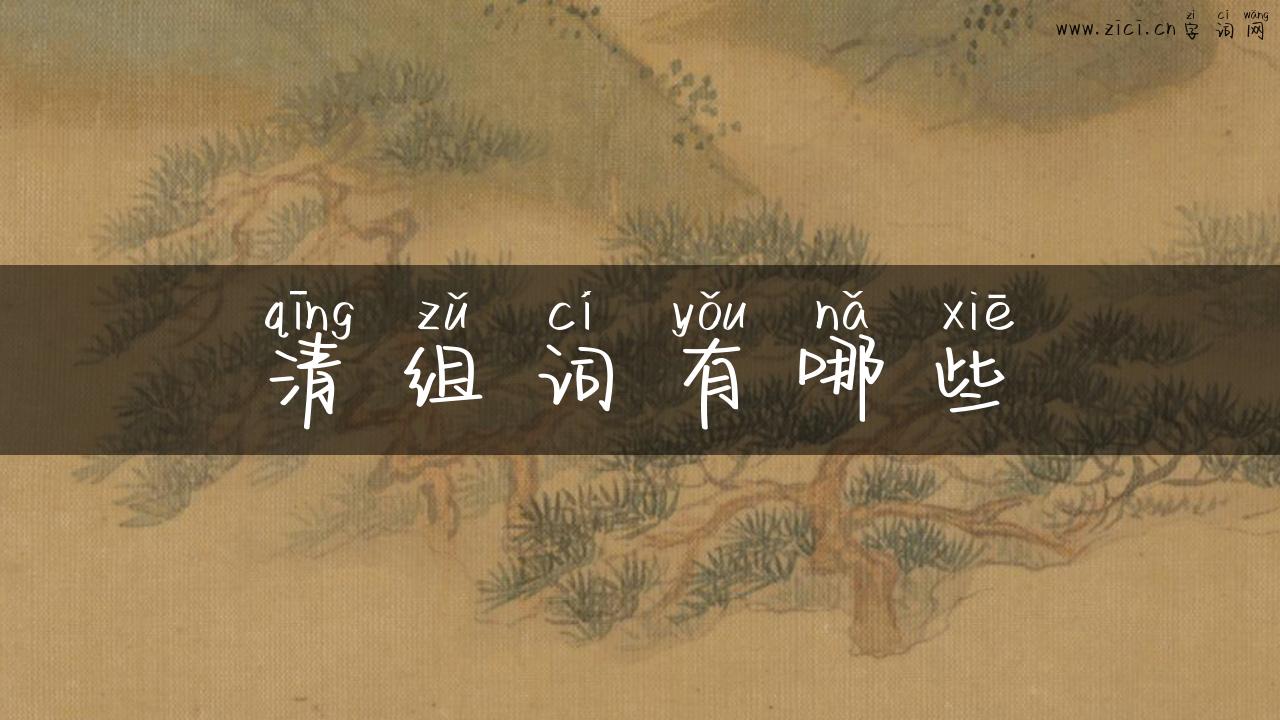 zì cí wǎng
www.zici.cn 字词网
qīng zǔ cí yǒu nǎ xiē
清组词有哪些